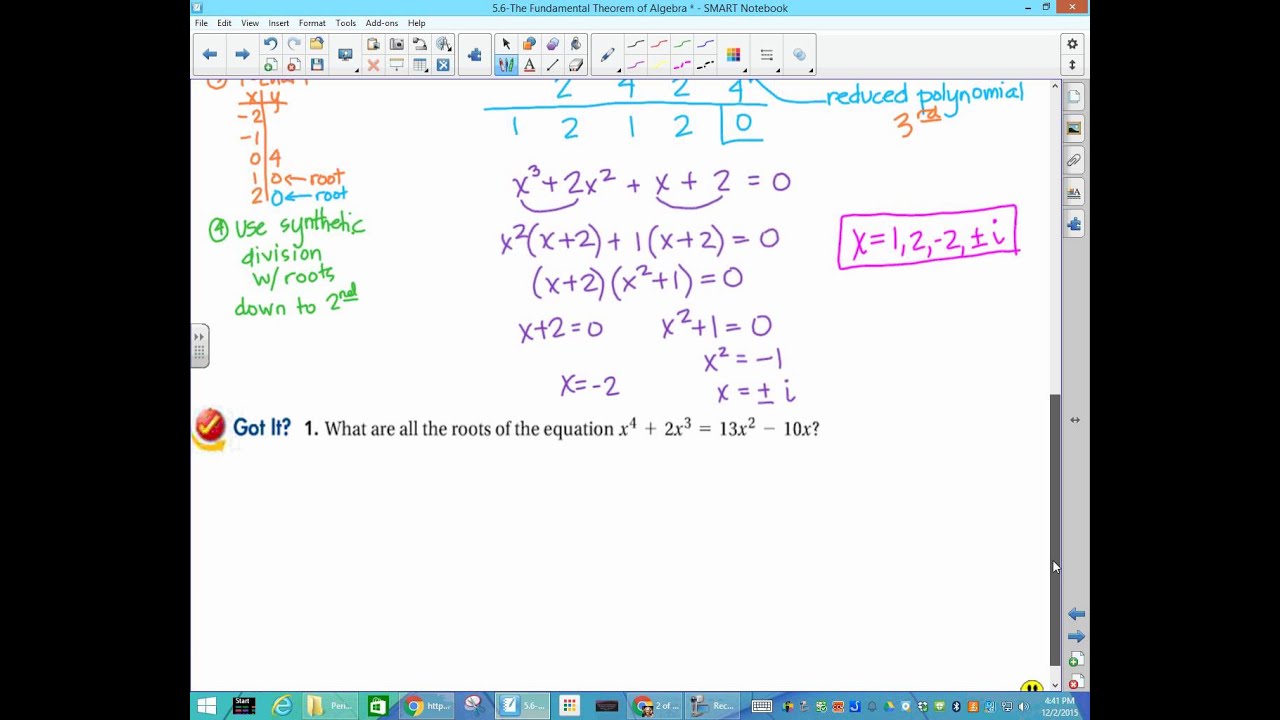 5.6-The Fundamental Theorem of Algebra * - SMART Notebook
File Edit View Insert Format Tools Add-ons Help
x y
-2
-1
0 4
1 0 ← root
2 0 ← root
④ Use synthetic
division
w/ roots
down to 2nd
2 4 2 4
1 2 1 2 0
reduced polynomial
3rd
x³ + 2x² + x + 2 = 0
x²(x+2) + 1(x+2) = 0
(x+2)(x²+1) = 0
x+2=0 x²+1=0
x² = -1
x=-2 x = ± i
x=1,2,-2,±i
Got It? 1. What are all the roots of the equation x⁴ + 2x³ = 13x² − 10x?
Start
Pen...
http...
5.6-...
2 of ...
Rec...
4:41 PM
12/2/2015